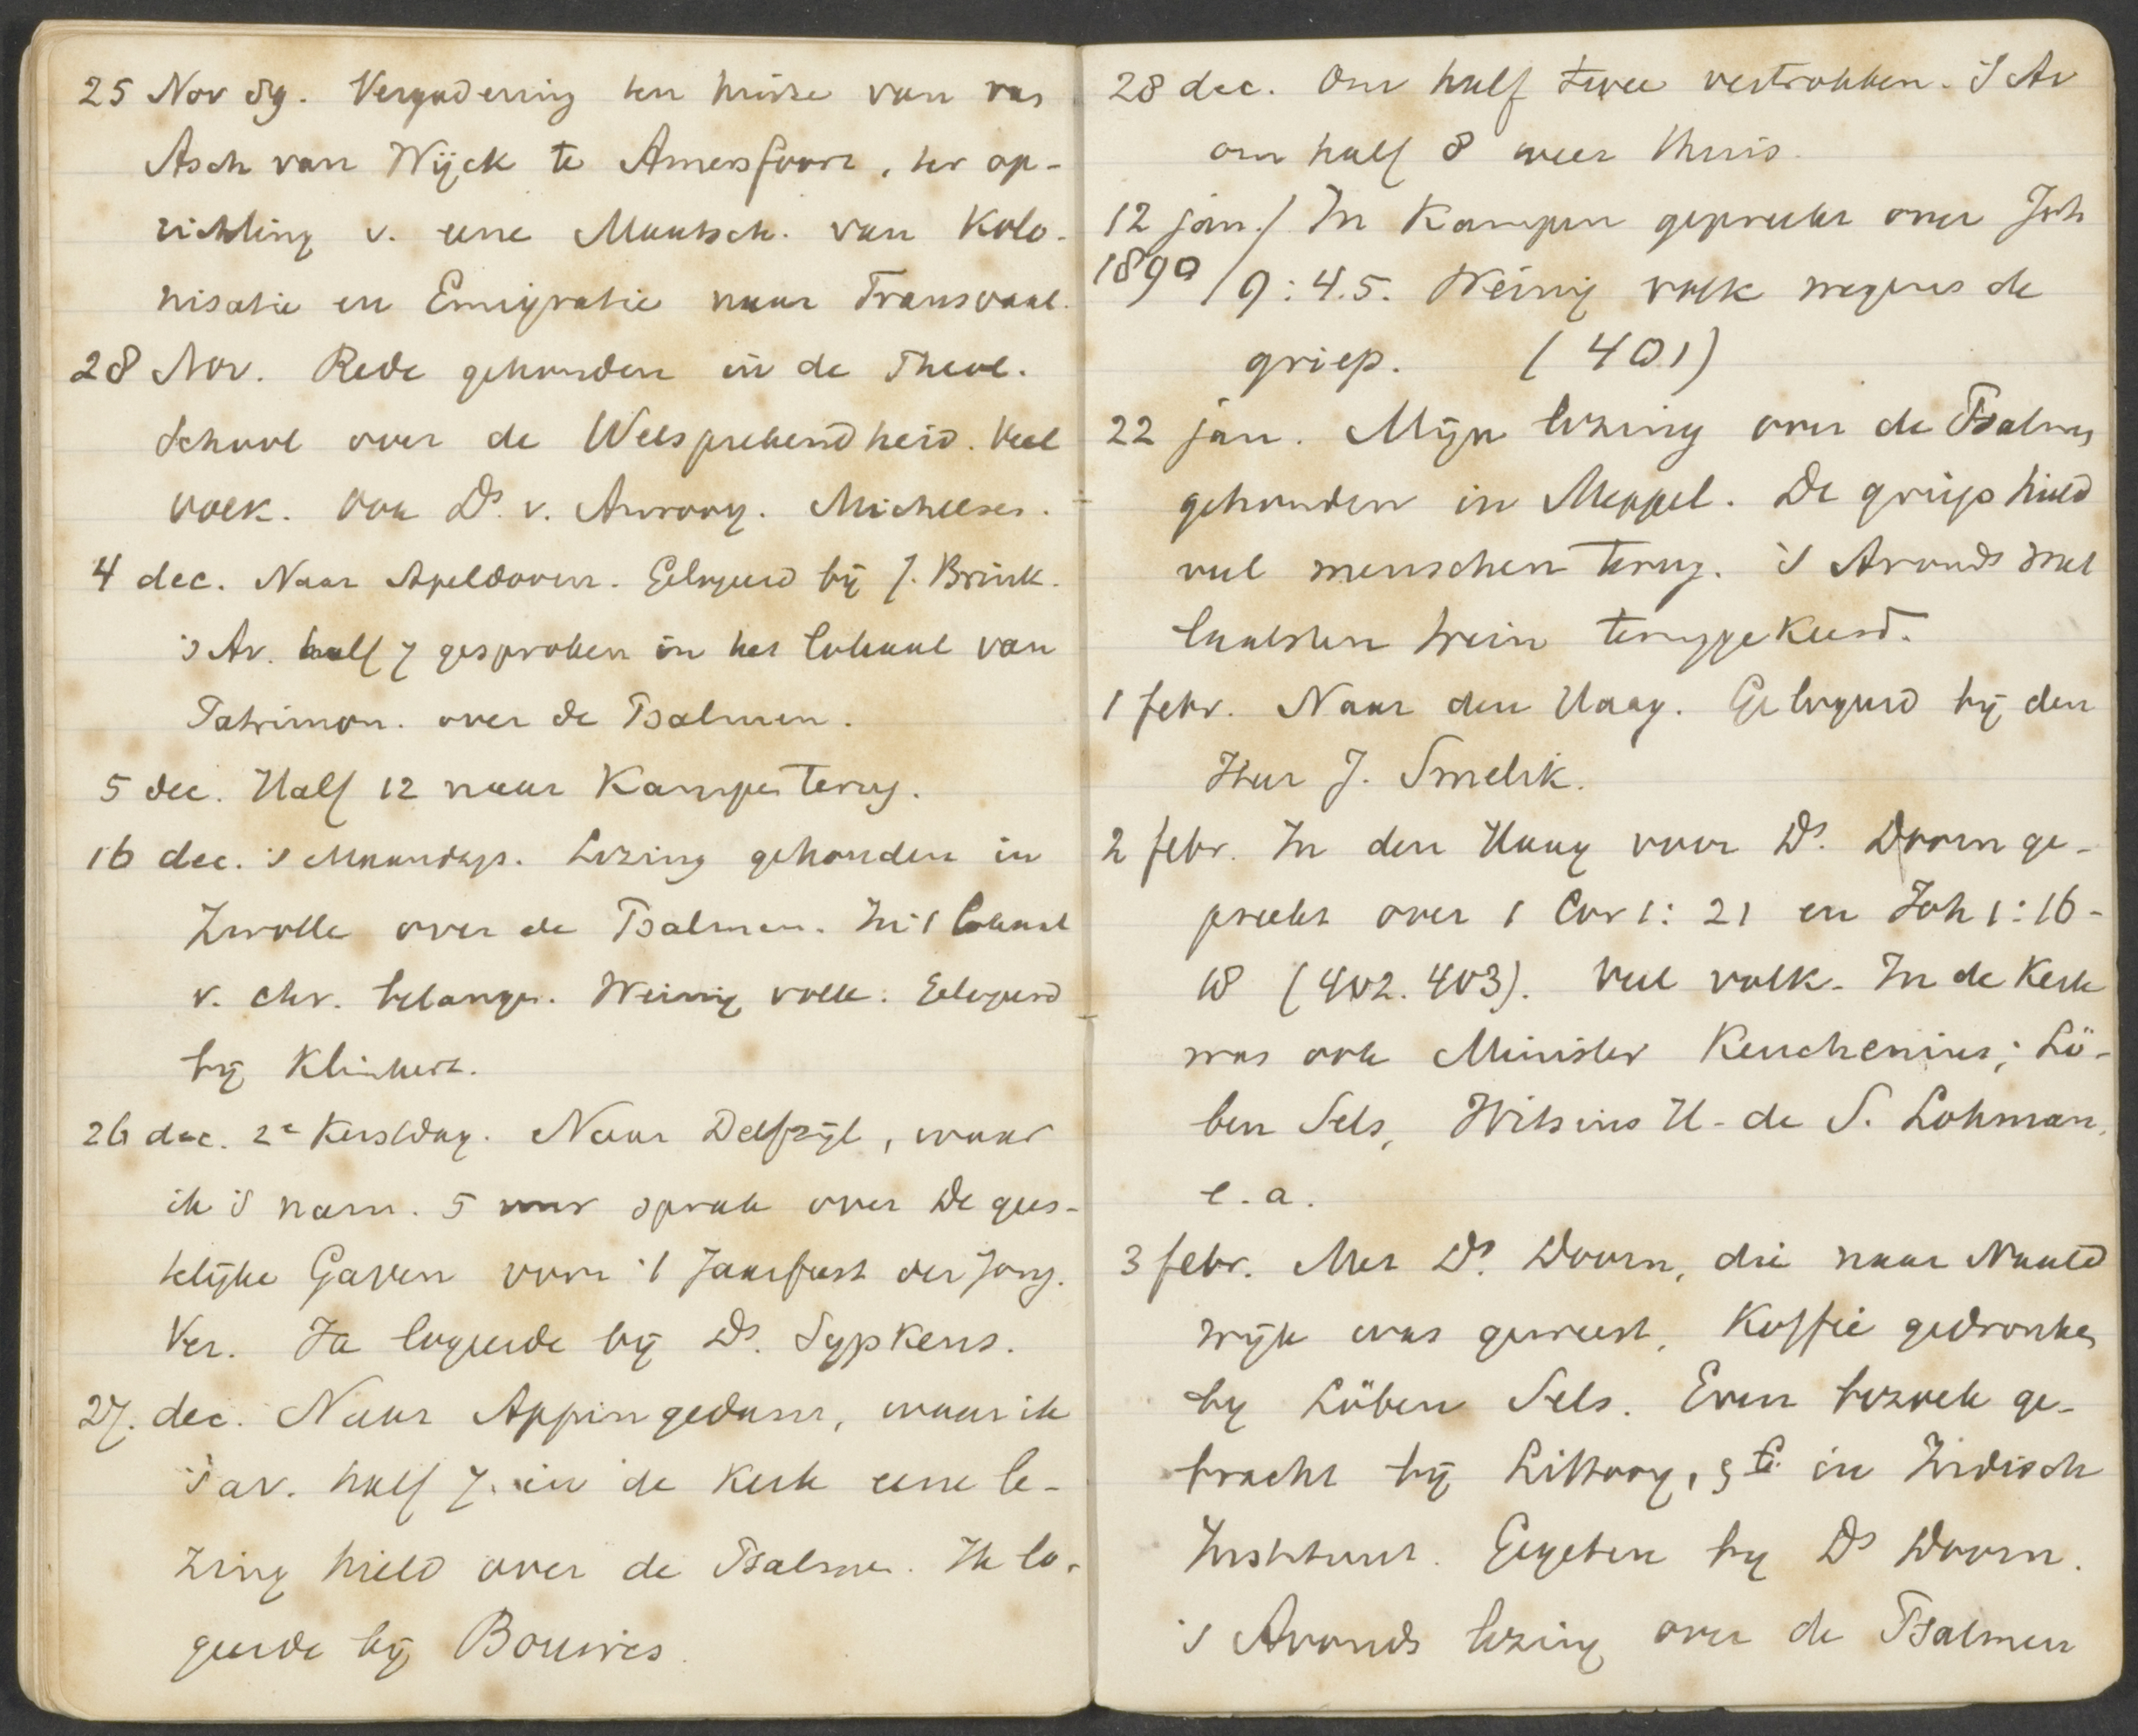 25 Nov 89. Vergadering ten huize van van
Asch van Wijck te Amersfoort, ter op-
richting v. eene Maatsch. van Kolo-
nisatie en Emigratie naar Transvaal.
28 Nov. Rede gehouden in de Theol.
School over de Welsprekendheid. Veel
volk. Ook Ds. v. Andel. Michelsen.
4 dec. Naar Apeldoorn. Gelogeerd bij J. Brink.
's Av. half 7 gesproken in het lokaal van
Patrimon. over de Psalmen.
5 dec. Half 12 naar Kampen terug.
16 dec. 's Maandags. Lezing gehouden in
Zwolle over de Psalmen. In 't lokaal
v. chr. belangen. Weinig volk. Gelogeerd
bij Klinkert.
26 dec. 2e Kerstdag. Naar Delfzijl, waar
ik 's nam. 5 uur sprak over De gees-
telijke Gaven voor 't Jaarfeest der Jong.
Ver. Ik logeerde bij Ds. Sypkens.
27. dec. Naar Appingedam, waar ik
's av. half 7. in de Kerk eene le-
zing hield over de Psalmen. Ik lo-
geerde bij Bouwes
28 dec. Om half twee vertrokken. 's Av
om half 8 weer thuis.
12 jan./ In Kampen gepreekt over Joh
1890 / 9:4.5. Weinig volk wegens de
griep. (401)
22 jan. Mijn lezing over de Psalmen
gehouden in Meppel. De griep hield
veel menschen terug. 's Avonds met
laatsten trein teruggekeerd.
1 febr. Naar den Haag. Gelogeerd bij den
Heer J. Smelik.
2 febr. In den Haag voor Ds. Doorn ge-
preekt over 1 Cor 1:21 en Joh 1:16-
18 (402.403). Veel volk. In de Kerk
was ook Minister Keuchenius; Lö-
ben Sels, Witsius H. de S. Lohman.
e.a.
3 febr. Met Ds. Doorn, die naar Naald
wijk was geweest, Koffie gedronken
by Löben Sels. Even bezoek ge-
bracht bij Littooy, in Indisch
Instituut. Gegeten by Ds Doorn.
's Avonds lezing over de Psalmen